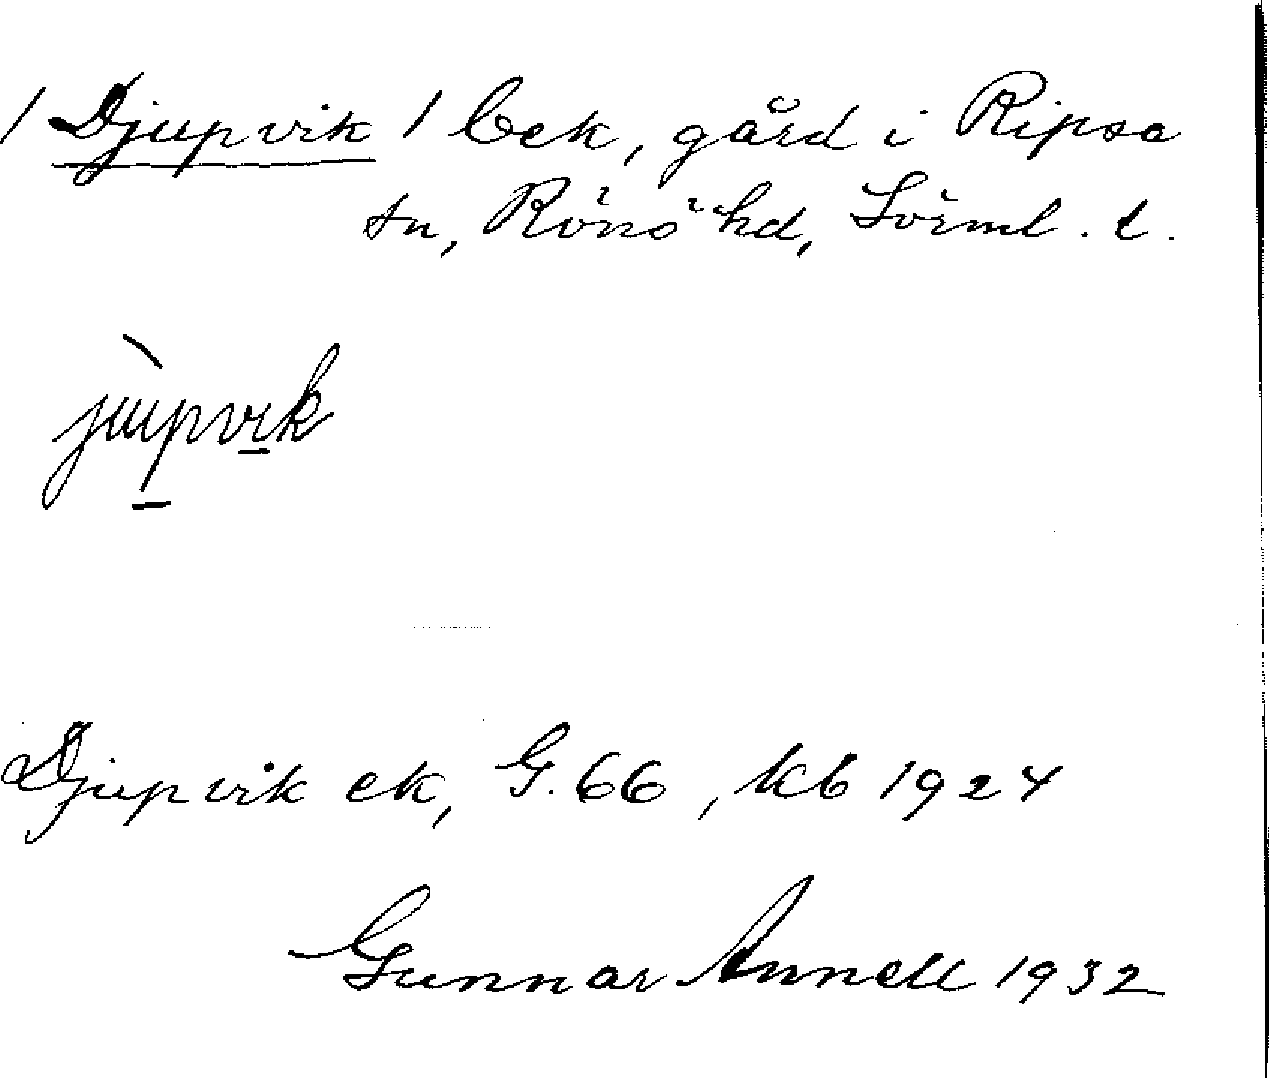 / Djupvik / bek, gård i Ripsa
sn, Rönö hd, Sörml. l.
jùpvik
Djupvik ek, G. 66, kb 1924
Gunnar Annell 1932